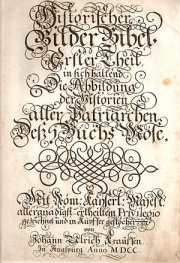 Historischer
Bilder Bibel
Erster Theil,
in sich haltend
Die Abbildung
der Historien
aller Patriarchen
Deß I. Buchs Mose.
Mit Röm. Kayserl. Majest.
allergnädigst ertheiltem Privilegio
gezeichnet und in Kupffer gestochen
von
Johann Ulrich Kraussen
In Augspurg Anno MDCC